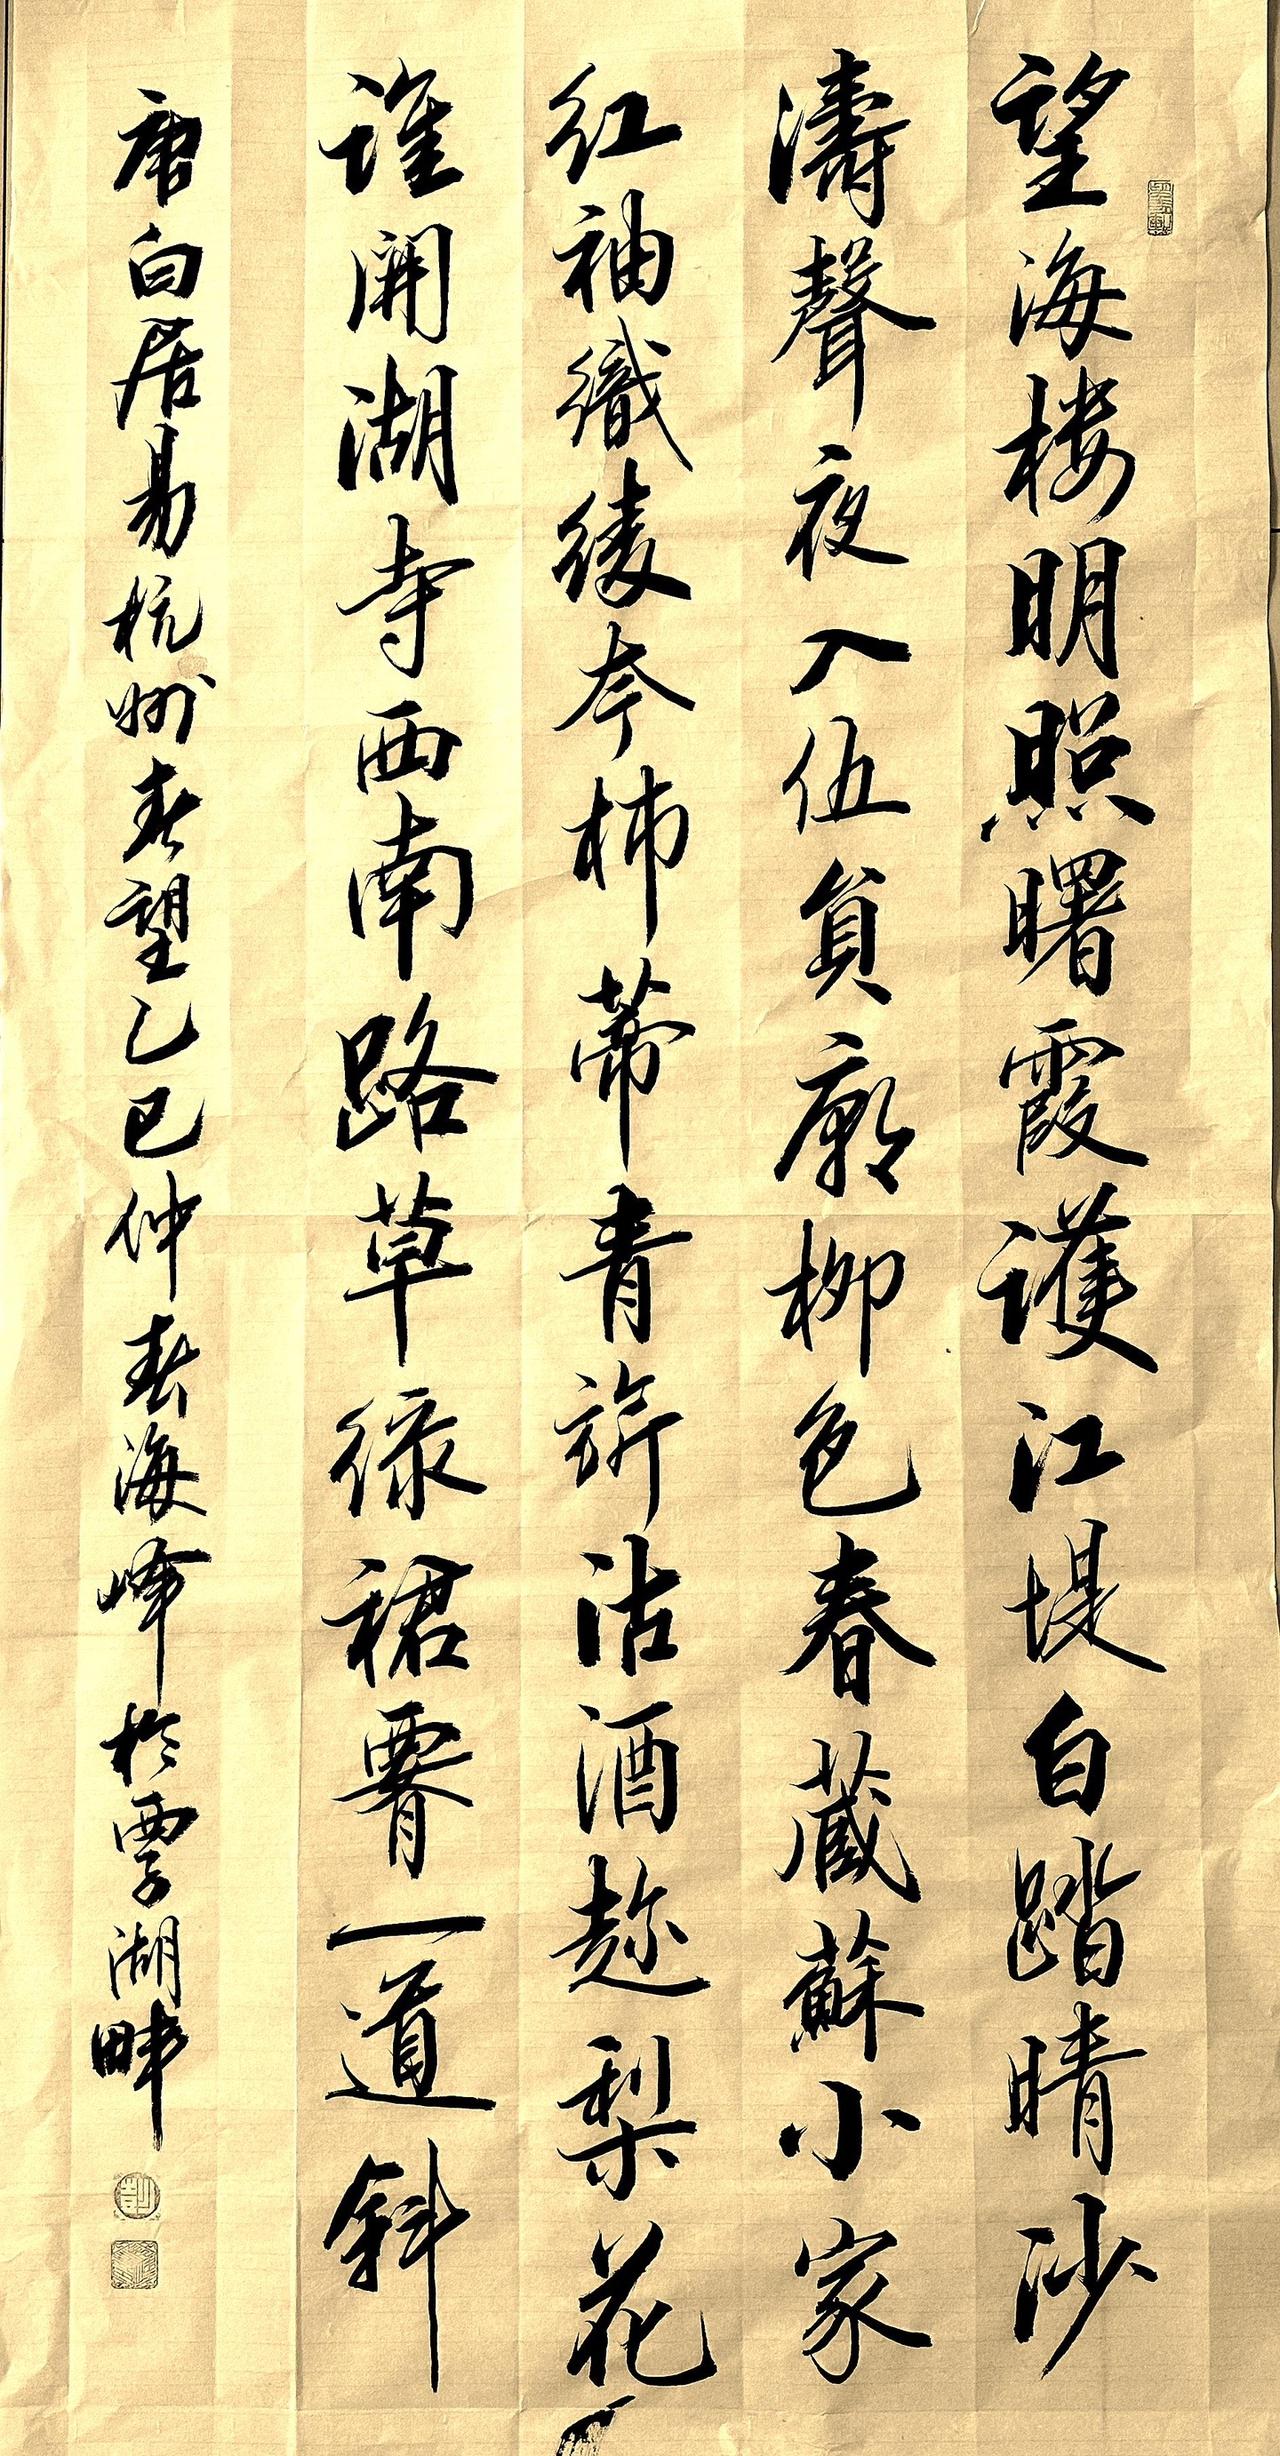 望海楼明照曙霞護江堤白踏晴沙
濤聲夜入伍員廟柳色春藏蘇小家
紅袖織綾夸柿蒂青旂沽酒趂梨花
誰開湖寺西南路草緑裙霄一道斜
唐白居易杭州春望乙巳仲春海峰於覃湖畔